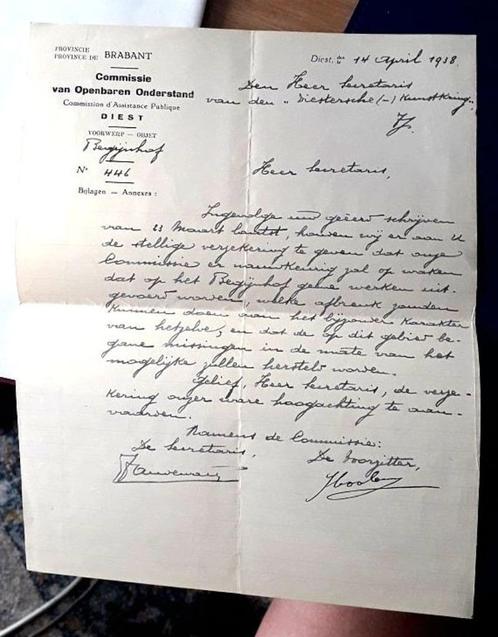 PROVINCIE
PROVINCE DE BRABANT
Commissie
van Openbaren Onderstand
Commission d'Assistance Publique
DIEST
VOORWERP — OBJET
Begijnhof
N° 446
Bijlagen — Annexes :
Diest, den le 14 April 1938.
Den Heer Secretaris
van den „Diestersche (–) Kunstkring"
Heer Secretaris,
Ingevolge uw geëerd schrijven
van 23 Maart laatst, houden wij er aan U
de stellige verzekering te geven dat onze
Commissie er nauwkeurig zal op waken
dat op het Begijnhof geene werken uit-
gevoerd worden, welke afbreuk zouden
kunnen doen aan het bijzonder karakter
van hetzelve, en dat de op dit gebied be-
gane missingen in de mate van het
mogelijke zullen hersteld worden.
Gelief, Heer Secretaris, de verze-
kering onzer ware hoogachting te aan-
vaarden.
Namens de Commissie:
De Secretaris,
De Voorzitter,